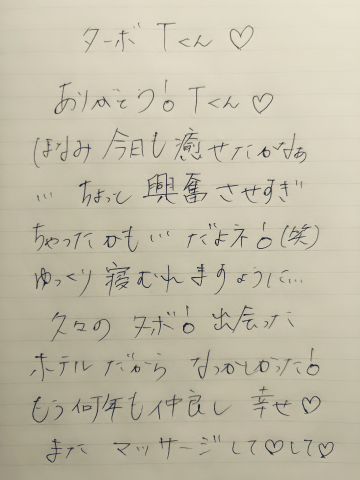 ターボ Tくん♡
ありがとう! Tくん♡
ほなみ 今日も 癒せたかなぁ
… ちょっと 興奮 させすぎ
ちゃったかも… だよネ!(笑)
ゆっくり 寝むれますように…
久々の タボ! 出会った
ホテル だから なつかしかった!
もう何年も仲良し 幸せ♡
また マッサージ して♡して♡